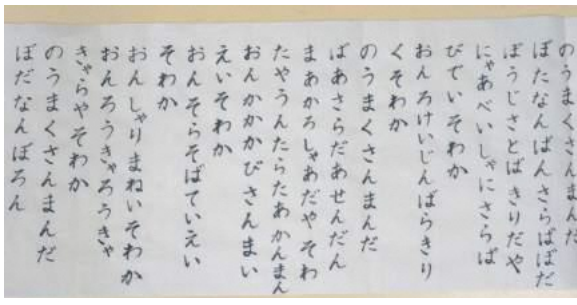 のうまくさんまんだ
ぼたなんばんさらばぼだ
ぼうじさとばきりだや
にゃあべいしゃにさらば
びでいそわか
おんろけいじんばらきり
くそわか
のうまくさんまんだ
ばあさらだあせんだん
まあかろしゃあだやそわ
たやうんたらたあかんまん
おんかかかびさんまい
えいそわか
おんそらそばていえい
そわか
おんしゃりまねいそわか
おんろうきゃろうきゃ
きゃらやそわか
のうまくさんまんだ
ぼだなんぼろん